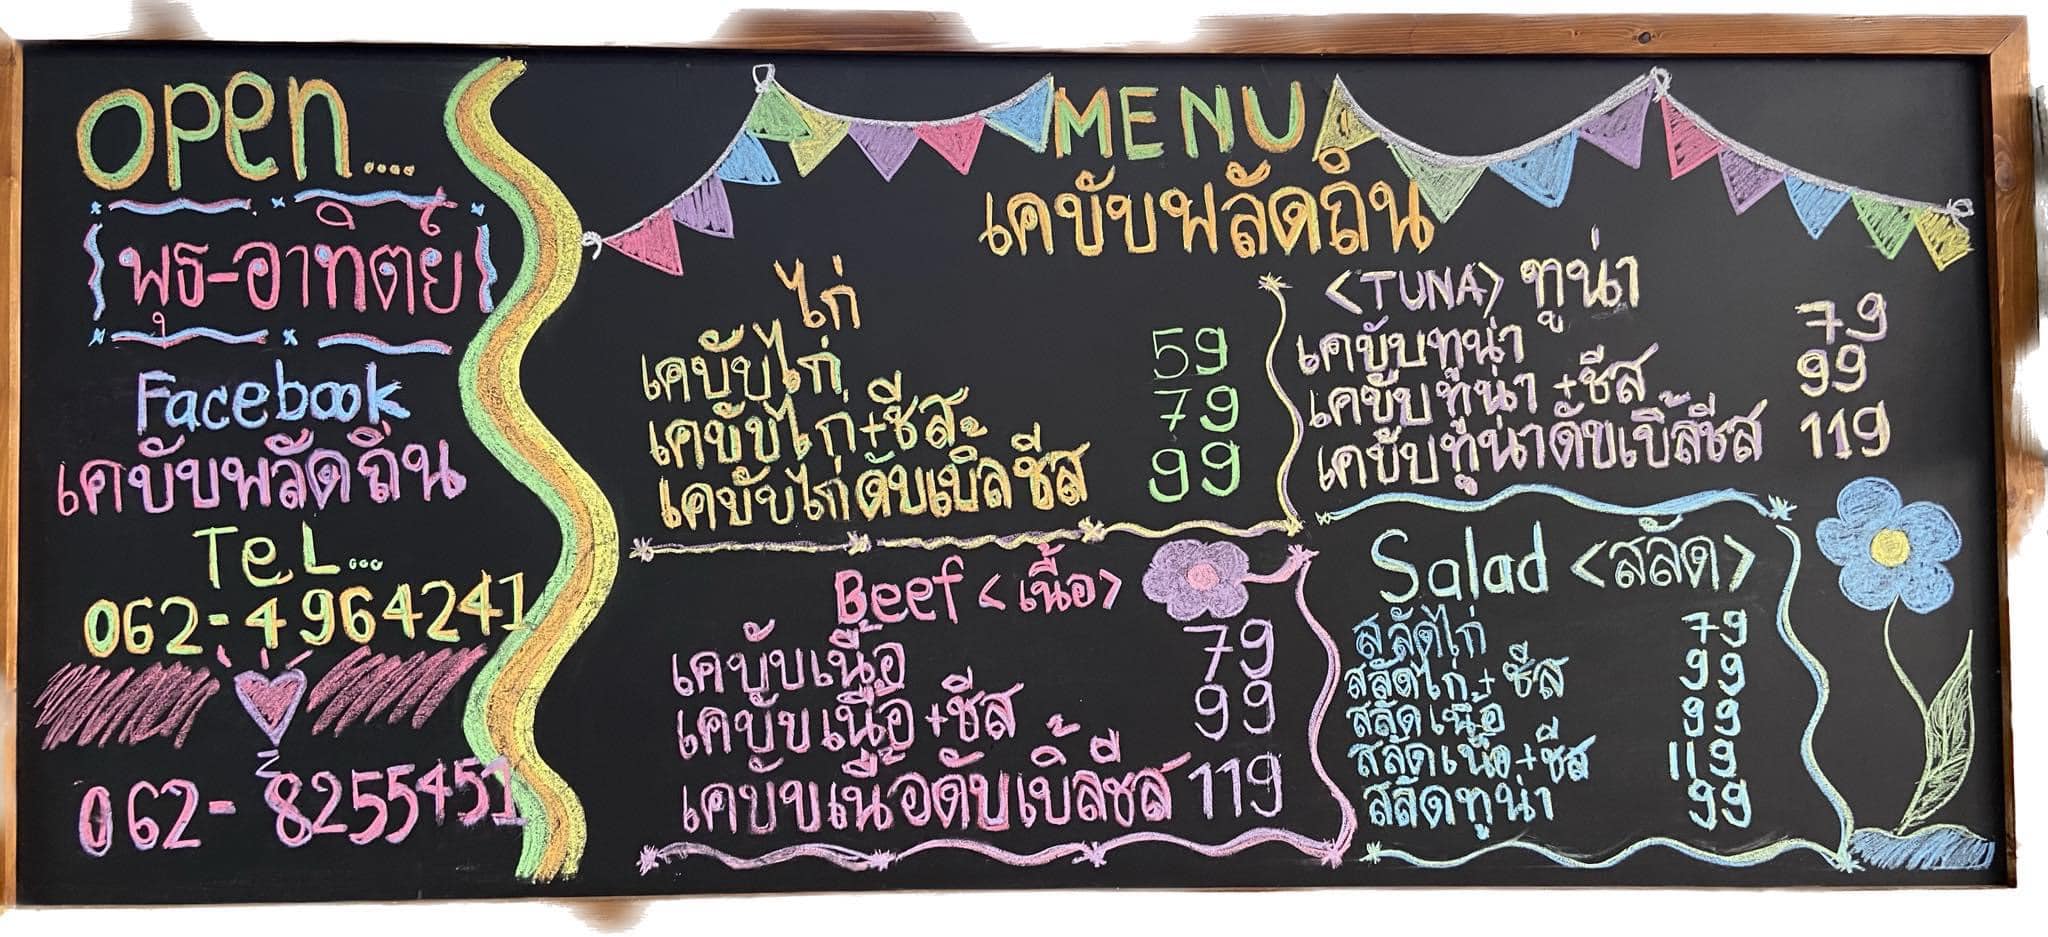 open....
พุธ-อาทิตย์
Facebook
เคบับพลัดถิ่น
TeL...
062-4964241
062-8255451
MENU
เคบับพลัดถิ่น
ไก่
เคบับไก่ 59
เคบับไก่+ชีส 79
เคบับไก่ดับเบิ้ลชีส 99
<TUNA> ทูน่า
เคบับทูน่า 79
เคบับทูน่า +ชีส 99
เคบับทูน่าดับเบิ้ลชีส 119
Beef <เนื้อ>
เคบับเนื้อ 79
เคบับเนื้อ+ชีส 99
เคบับเนื้อดับเบิ้ลชีส 119
Salad <สลัด>
สลัดไก่ 79
สลัดไก่+ชีส 99
สลัดเนื้อ 99
สลัดเนื้อ+ชีส 119
สลัดทูน่า 99